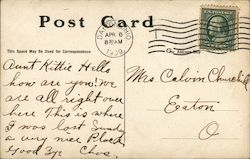 Post Card
This Space May Be Used for Correspondence
APR 6
1909
OHIO
Aunt Kittie Hello
how are you! we
are all right over
here This is where
I was last Sunday
a very nice Place
Good Bye Chas.
Mrs Calvin Churchill
Eaton
O